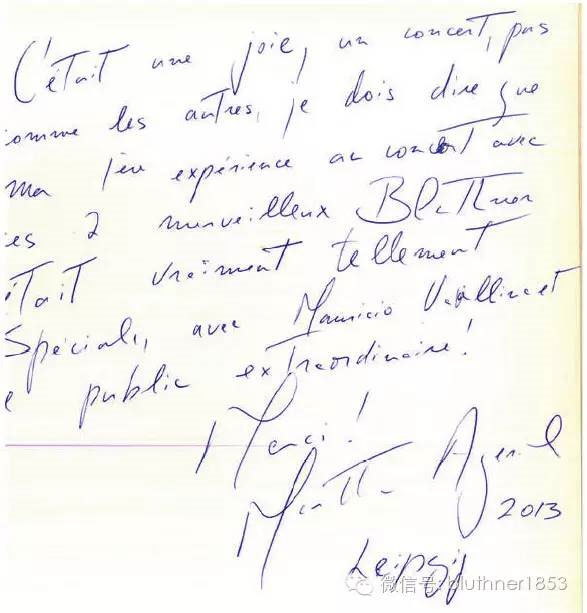 C'était une joie, un concert, pas
comme les autres, je dois dire que
ma 1ère expérience au concert avec
ces 2 merveilleux Blüthner
était vraiment tellement
Spécial, avec Mauricio Vallina et
le public extraordinaire!
Merci!
Martha Argerich
2013
Leipzig
微信号: bluthner1853